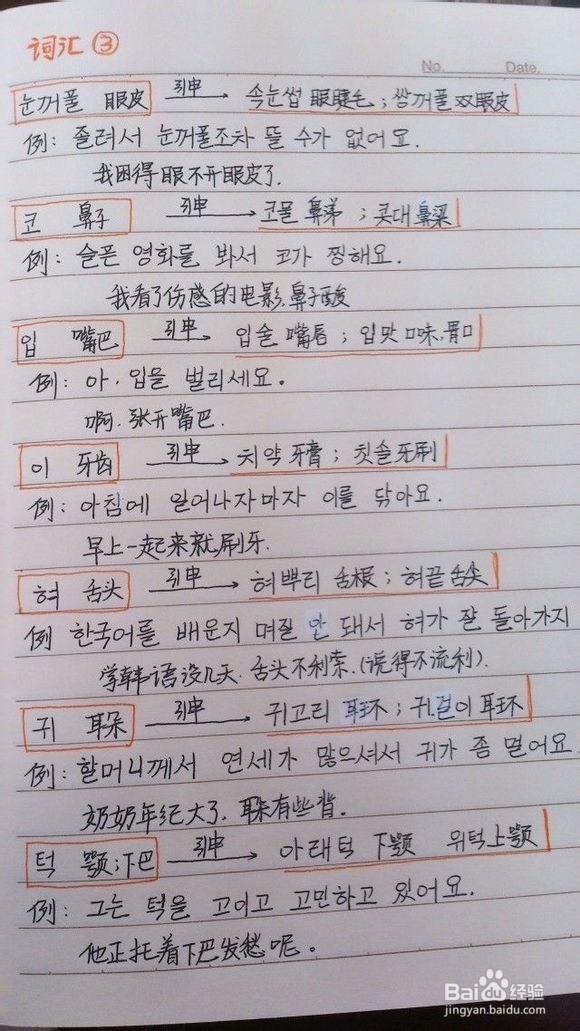 词汇 ③
No. Date.
눈꺼풀 眼皮 引申 속눈썹 眼睫毛; 쌍꺼풀 双眼皮
例: 졸려서 눈꺼풀조차 뜰 수가 없어요.
我困得眼不开眼皮了.
코 鼻子 引申 코물 鼻涕; 콧대 鼻梁
例: 슬픈 영화를 봐서 코가 찡해요.
我看了伤感的电影,鼻子酸
입 嘴巴 引申 입술 嘴唇; 입맛 口味,胃口
例: 아, 입을 벌리세요.
啊. 张开嘴巴.
이 牙齿 引申 치약 牙膏; 칫솔 牙刷
例: 아침에 일어나자마자 이를 닦아요.
早上一起来就刷牙.
혀 舌头 引申 혀뿌리 舌根; 혀끝 舌尖
例 한국어를 배운지 며칠 안 돼서 혀가 잘 돌아가지
学韩语没几天. 舌头不利索.(说得不流利).
귀 耳朵 引申 귀고리 耳环; 귀걸이 耳环
例: 할머니께서 연세가 많으셔서 귀가 좀 멀어요
奶奶年纪大了, 耳朵有些背.
턱 颚;下巴 引申 아래턱 下颚 위턱 上颚
例: 그는 턱을 고이고 고민하고 있어요.
他正托着下巴发愁呢。
Baidu 经验
jingyan.baidu.com